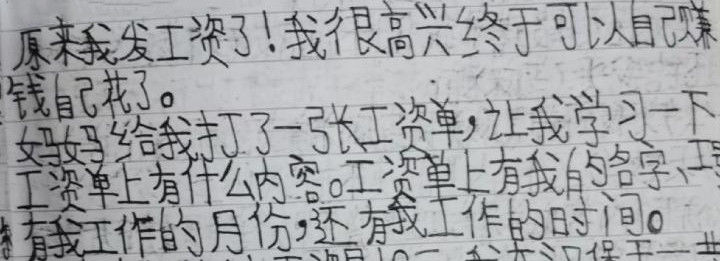 原来我发工资了！我很高兴终于可以自己赚
钱自己花了。
妈妈给我打了一张工资单，让我学习一下
工资单上有什么内容。工资单上有我的名字、工
有我工作的月份，还有我工作的时间。